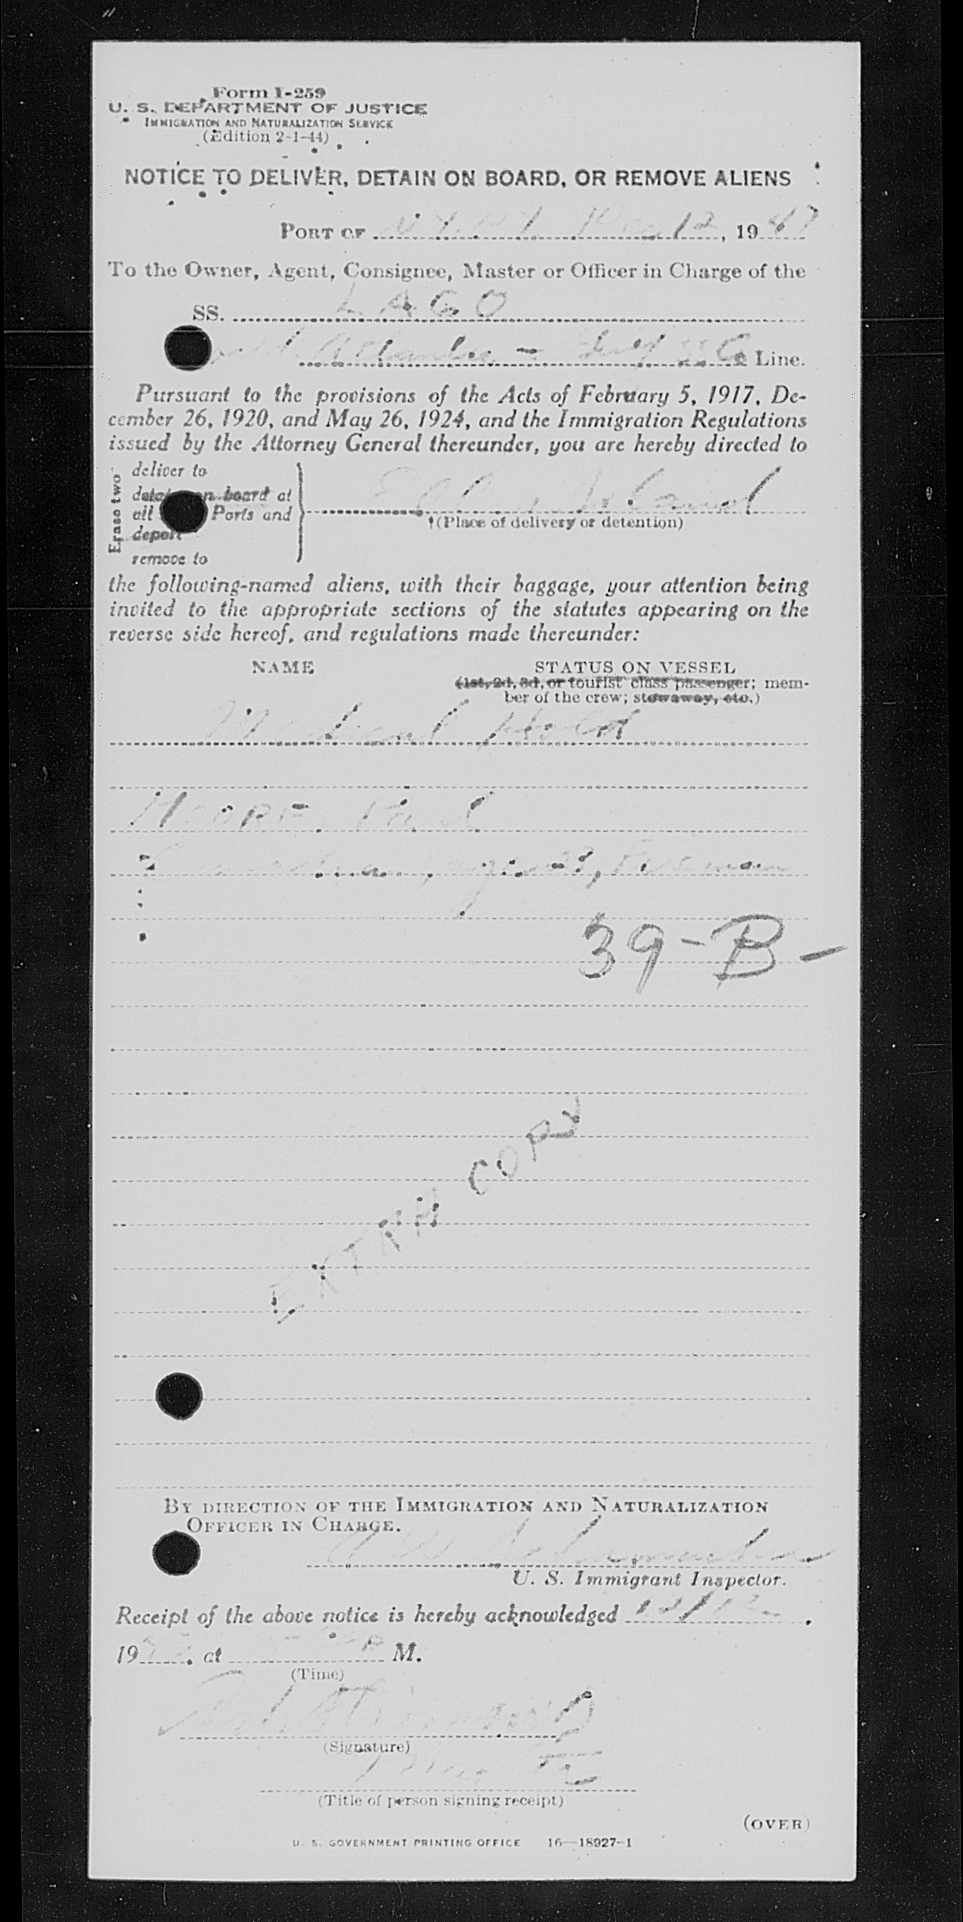 Form I-259
U. S. DEPARTMENT OF JUSTICE
IMMIGRATION AND NATURALIZATION SERVICE
(Edition 2-1-44)
NOTICE TO DELIVER, DETAIN ON BOARD, OR REMOVE ALIENS
PORT OF N.Y., N.Y. Dec 12, 1947
To the Owner, Agent, Consignee, Master or Officer in Charge of the
SS. LAGO
Atlantic - Gulf Line.
Pursuant to the provisions of the Acts of February 5, 1917, De-
cember 26, 1920, and May 26, 1924, and the Immigration Regulations
issued by the Attorney General thereunder, you are hereby directed to
Erase two
deliver to
detain on board at
all Ports and
deport
remove to
Ellis Island
(Place of delivery or detention)
the following-named aliens, with their baggage, your attention being
invited to the appropriate sections of the statutes appearing on the
reverse side hereof, and regulations made thereunder:
NAME STATUS ON VESSEL
(1st, 2d, 3d, or tourist class passenger; mem-
ber of the crew; stowaway, etc.)
Medical Hold
MOORE, Paul
Fireman
39-B-
EXTRA COPY
BY DIRECTION OF THE IMMIGRATION AND NATURALIZATION
OFFICER IN CHARGE.
U. S. Immigrant Inspector.
Receipt of the above notice is hereby acknowledged 12/12,
19 , at M.
(Time)
(Signature)
(Title of person signing receipt)
(OVER)
U. S. GOVERNMENT PRINTING OFFICE 16—18927-1